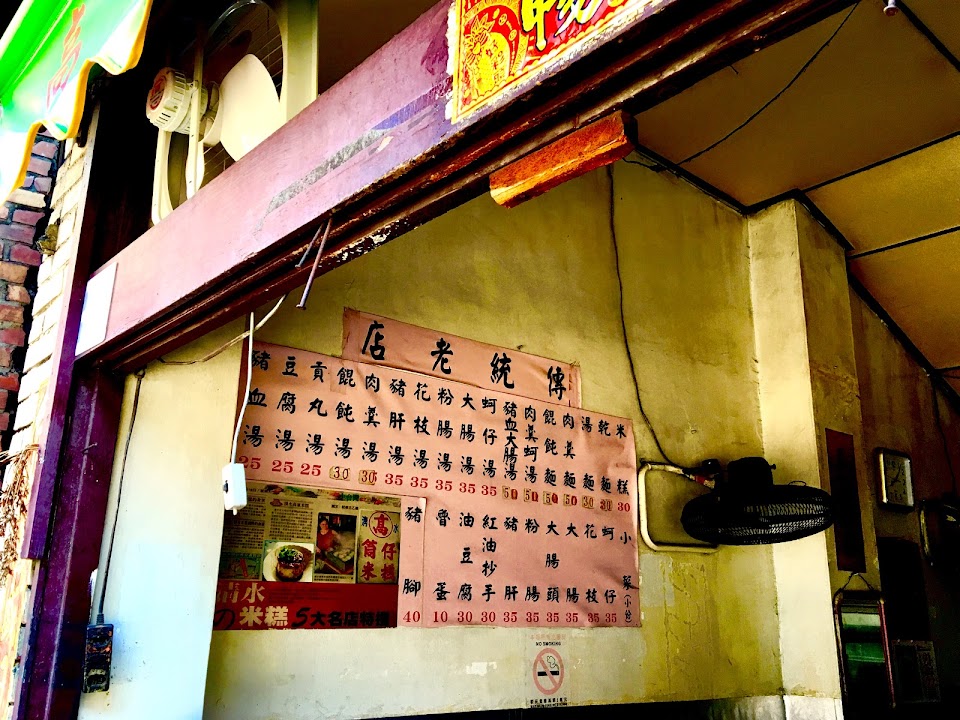 傳統老店
米糕 30
乾麵 30
湯麵 30
肉羹麵 50
餛飩麵 50
肉羹蚵湯 50
豬血大腸湯 50
蚵仔湯 35
大腸湯 35
粉腸湯 35
花枝湯 35
豬肝湯 35
肉羹湯 30
餛飩湯 30
貢丸湯 25
豆腐湯 25
豬血湯 25
小菜(小份)
蚵仔 35
花枝 35
大腸 35
大腸頭 35
粉腸 35
豬肝 35
紅油抄手 30
油豆腐 30
魯蛋 10
豬腳 40
高
筒仔
米糕
清水
の米糕 5大名店特搜
NO SMOKING